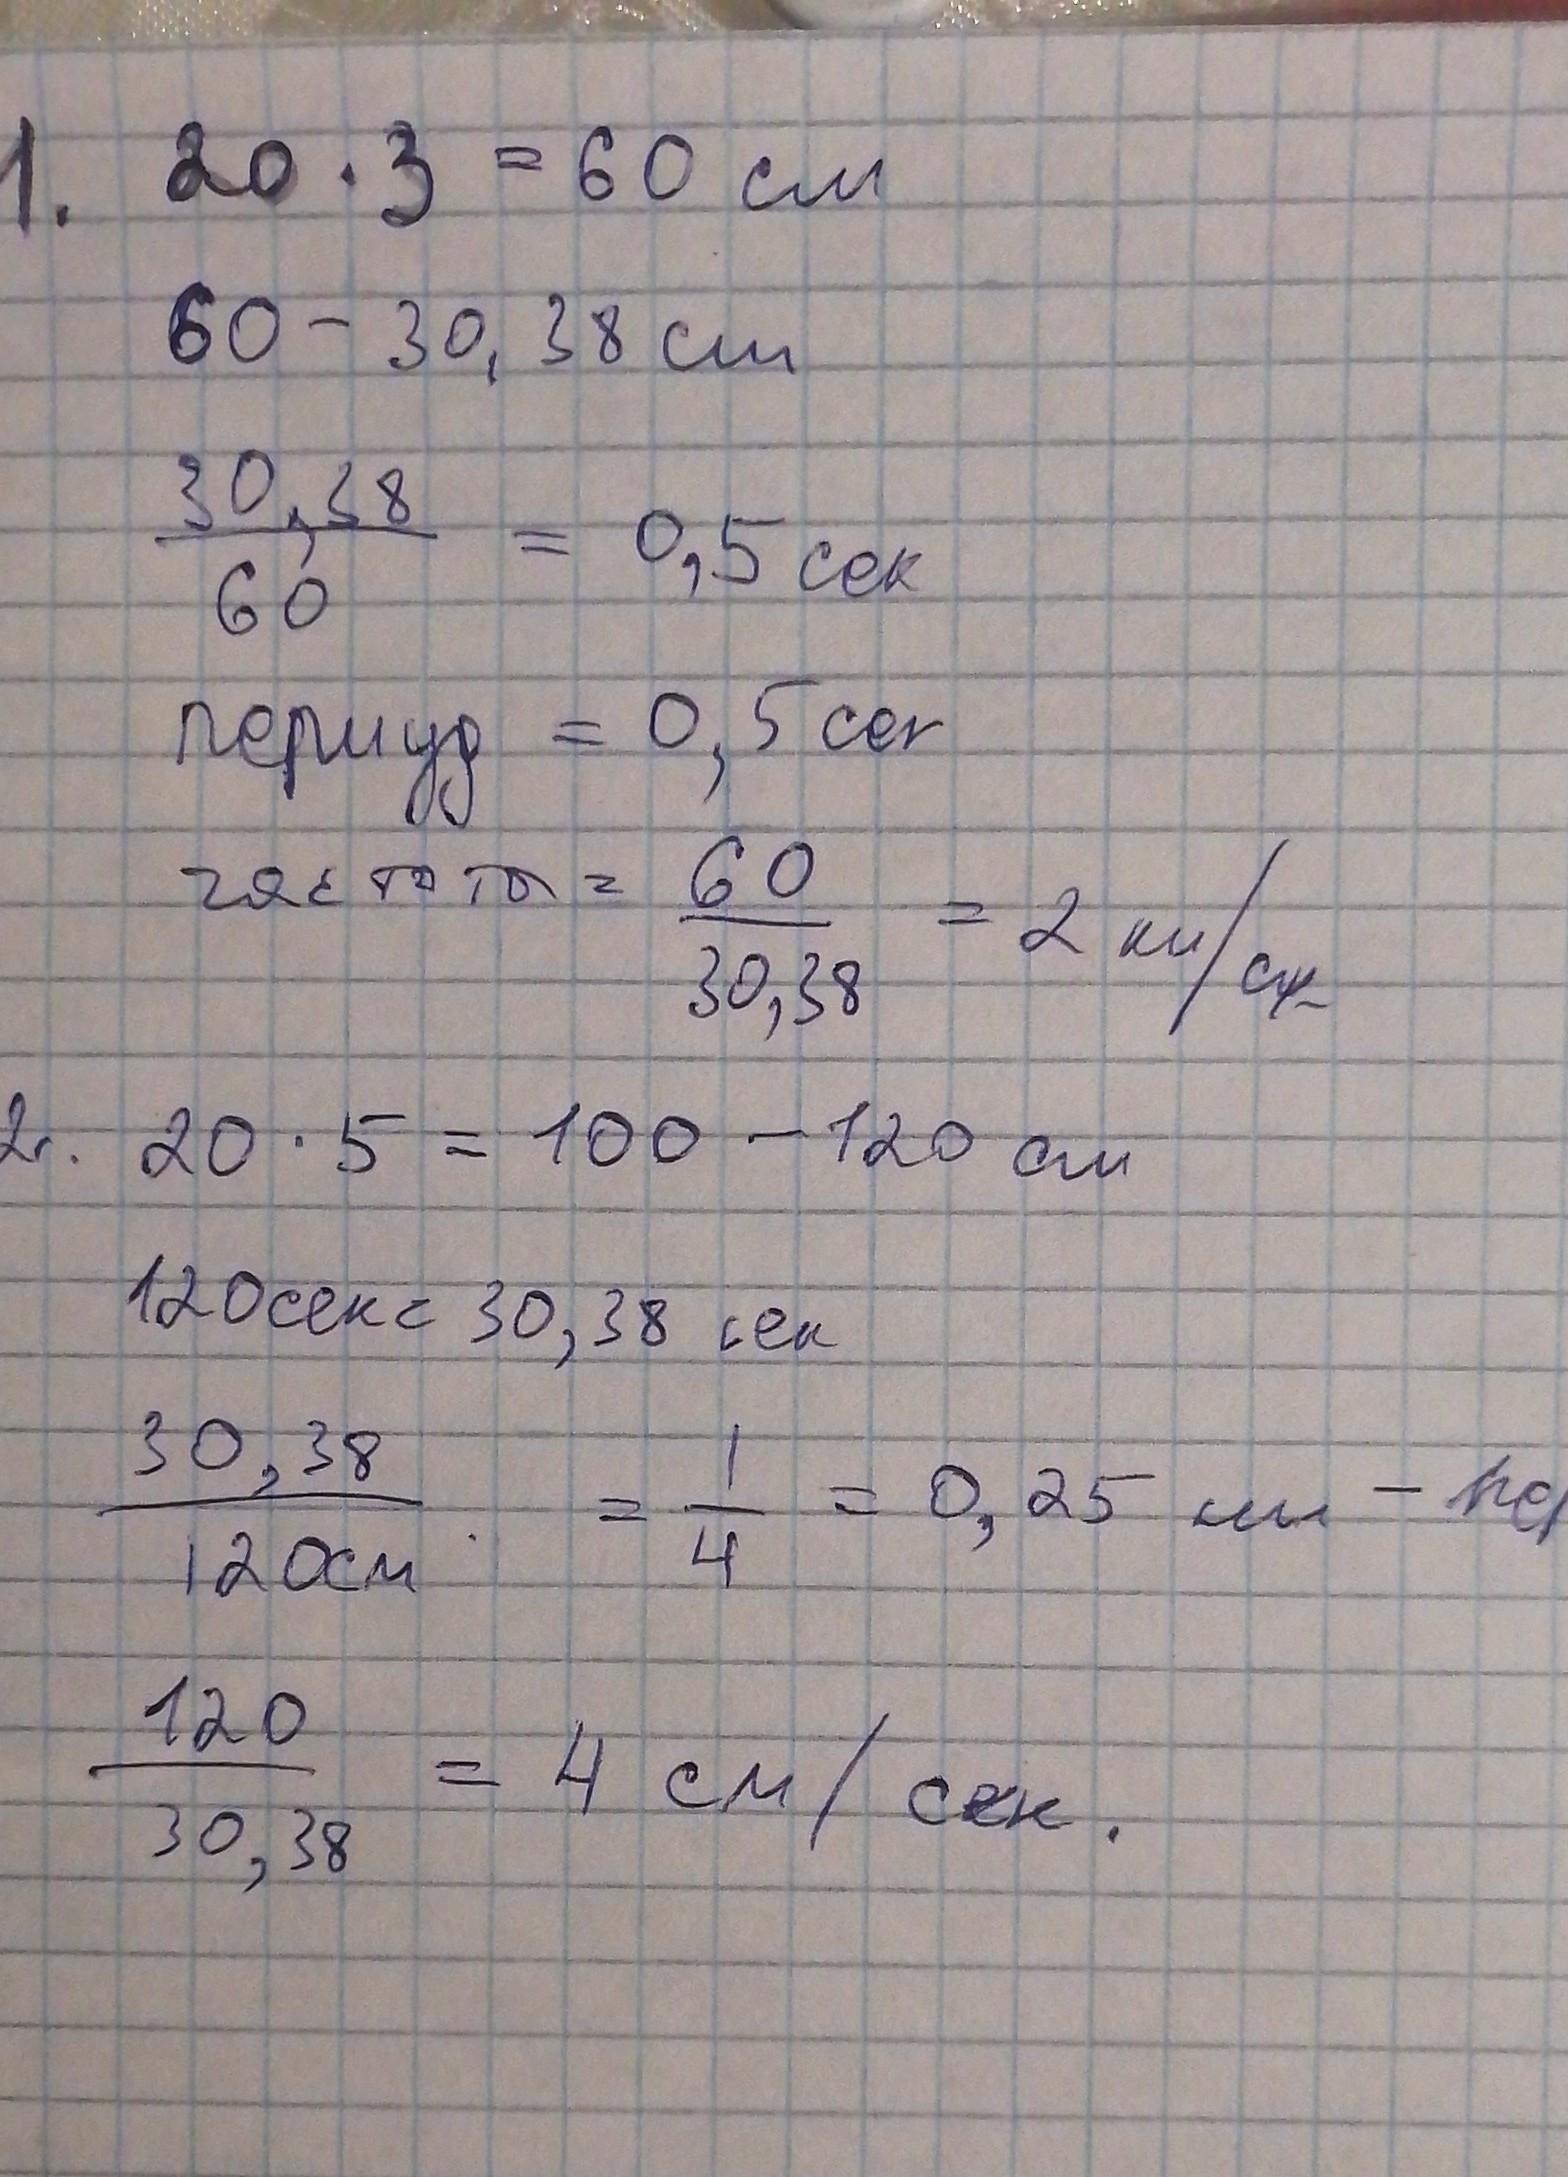 1. 20 · 3 = 60 см
60 - 30,38 см
30,38
60
= 0,5 сек
периуд = 0,5 сек
частота = 60
30,38
= 2 км/сек
2. 20 · 5 = 100 - 120 см
120сек = 30,38 сек
30,38
120см
= 1
4
= 0,25 мм - пер
120
30,38
= 4 см/сек.